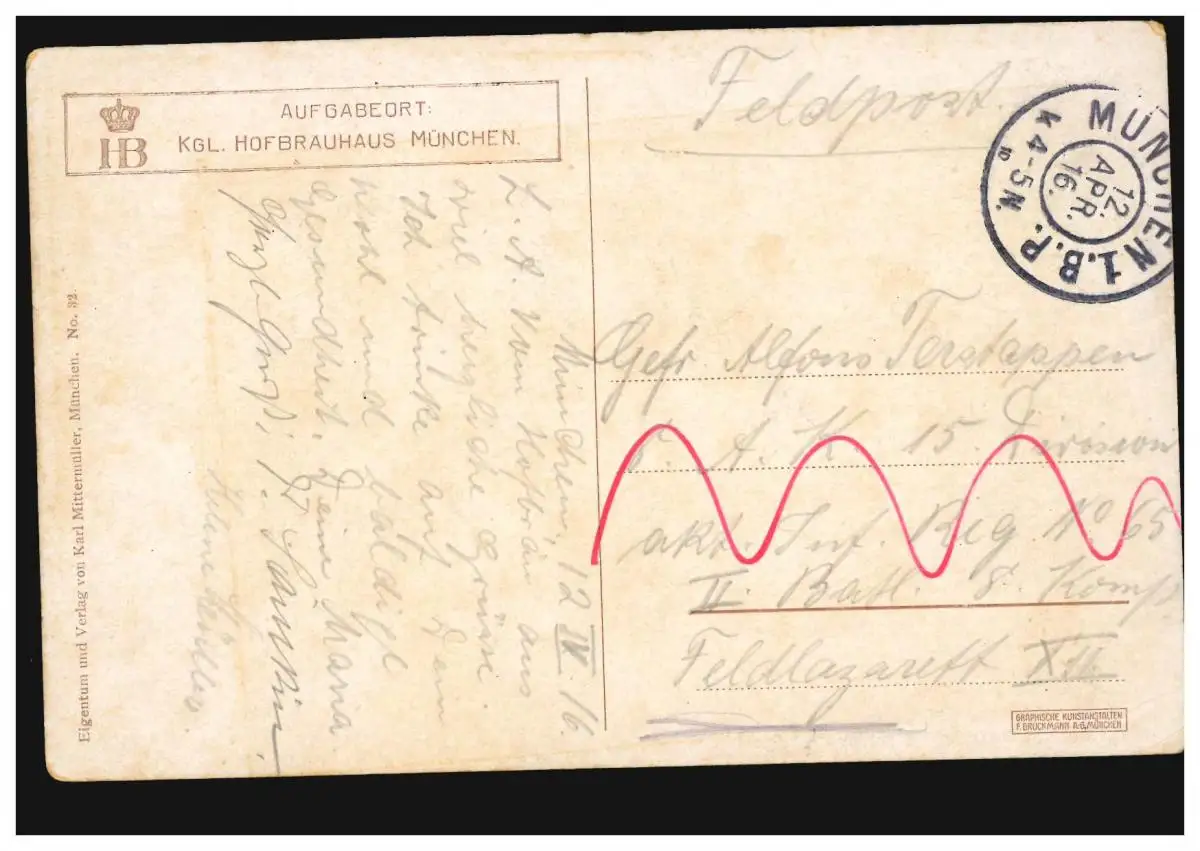 AUFGABEORT:
KGL. HOFBRAUHAUS MÜNCHEN.
HB
Feldpost.
MÜNCHEN 1. B.P.
12.
APR.
16.
4-5N.
München, 12 IV. 16.
L. A. Vom Hofbräu aus
viel herzliche Grüsse.
Ich trinke auf Dein
wohl und baldige
Gesundheit. Deine Maria
Gefr. Alfons Terstappen
8. A. K. 15. Division
akt. Inf. Reg. No 65
II. Batl. 8. Komp
Feldlazarett XII.
Eigentum und Verlag von Karl Mittermüller, München. No. 32.
GRAPHISCHE KUNSTANSTALTEN
F. BRUCKMANN A-G. MÜNCHEN